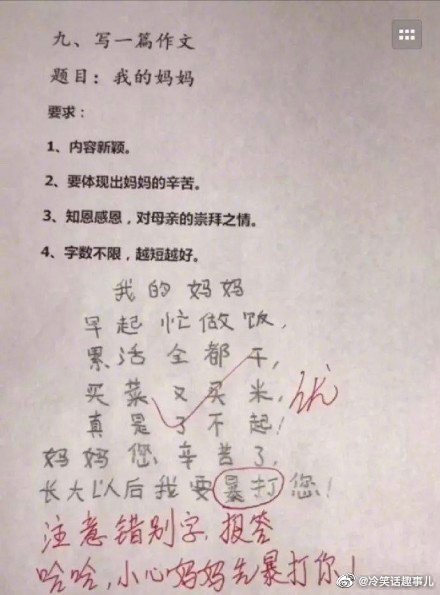 九、写一篇作文
题目：我的妈妈
要求：
1、内容新颖。
2、要体现出妈妈的辛苦。
3、知恩感恩，对母亲的崇拜之情。
4、字数不限，越短越好。
我的妈妈
早起忙做饭，
累活全都干，
买菜又买米，
真是了不起！
优
妈妈您辛苦了，
长大以后我要暴打您！
注意错别字，报答
哈哈，小心妈妈先暴打你！
@冷笑话趣事儿